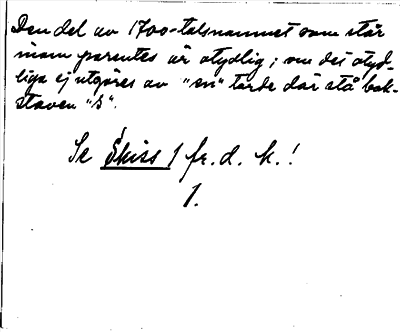 Den del av 1700-talsnamnet som står
inom parentes är otydlig; om det otyd-
liga ej utgöres av "en" torde där stå bok-
staven "s".
Se Skiss 1 fr. d. k.!
1.